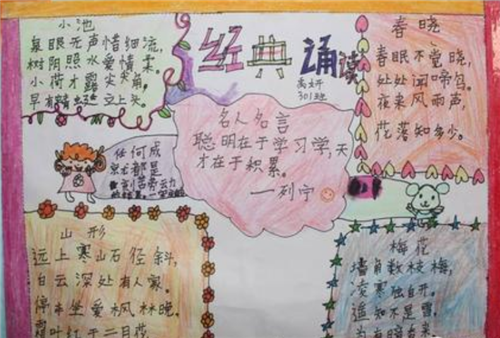 小池
泉眼无声惜细流,
树阴照水爱情柔。
小荷才露尖尖角,
早有蜻蜓立上头。
经典诵读
301班
春晓
春眠不觉晓,
处处闻啼鸟。
夜来风雨声,
花落知多少。
名人名言
聪明在于学习学,天
才在于积累。
——列宁
任何成
就都是
刻苦劳动
山形
远上寒山石径斜,
白云深处有人家。
停车坐爱枫林晚,
霜叶红于二月花。
梅花
墙角数枝梅,
凌寒独自开。
遥知不是雪,
为有暗香来。